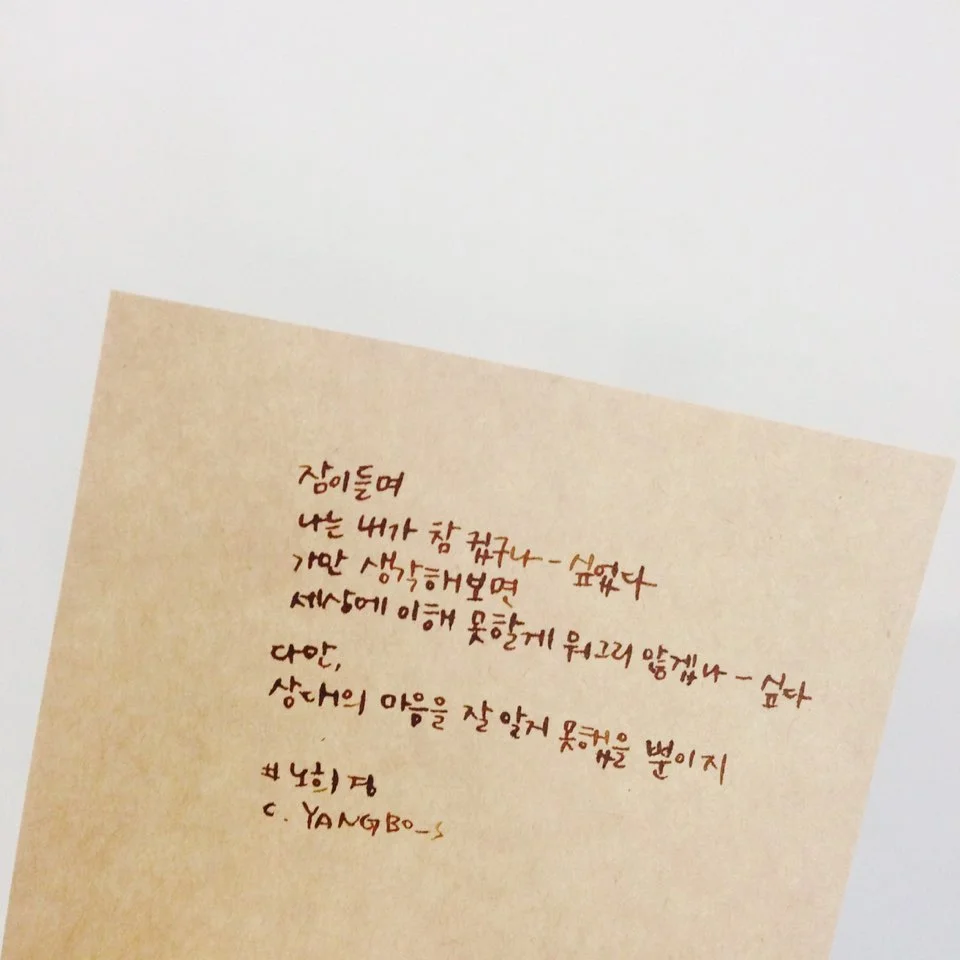 잠이들며
나는 내가 참 컸구나 - 싶었다
가만 생각해보면
세상에 이해 못할게 뭐그리 많겠나 - 싶다
다만,
상대의 마음을 잘 알지 못했을 뿐이지
#노희경
C. YANGBO_S